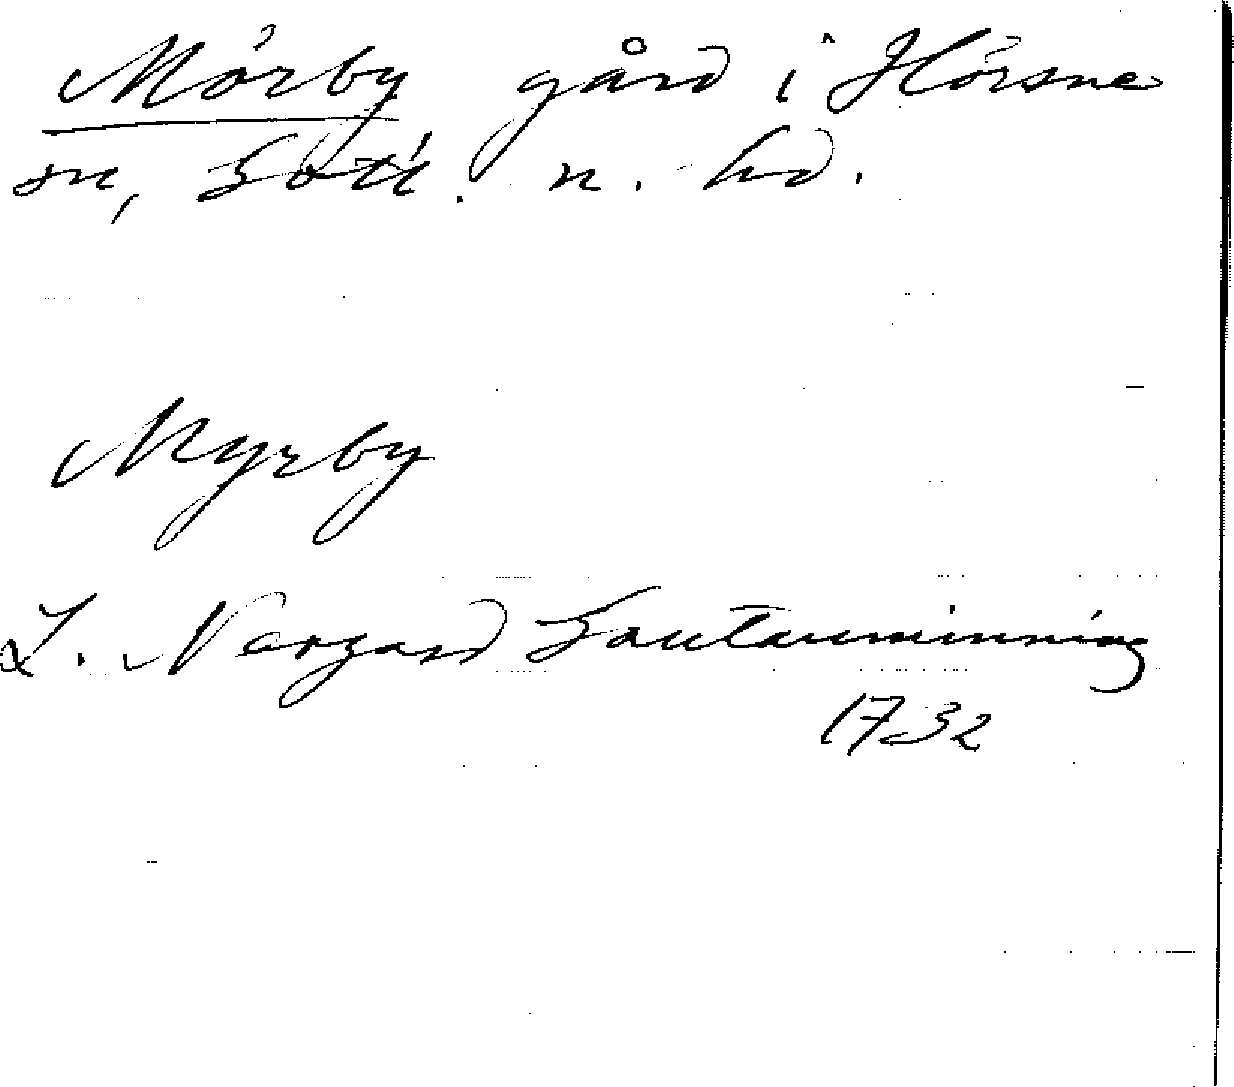 Mörby gård i Hörsne
sn, Gotl. n. hd.
Myrby
L. Neogard Gautauminning
1732